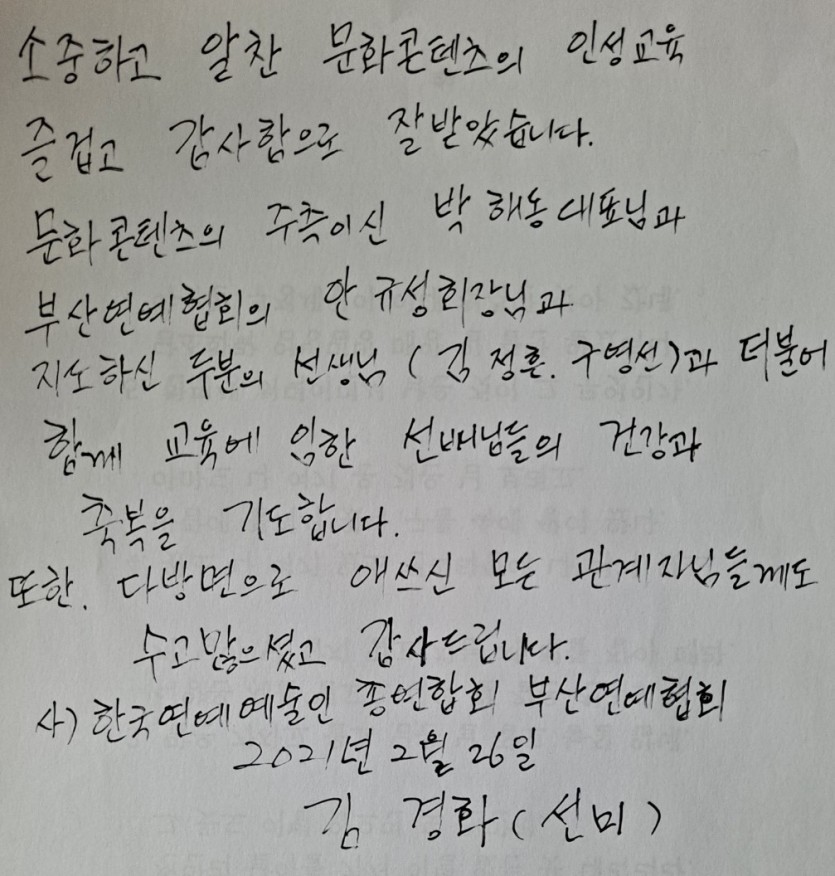 소중하고 알찬 문화콘텐츠의 인성교육
즐겁고 감사함으로 잘받았습니다.
문화콘텐츠의 주측이신 박 해동대표님과
부산연예협회의 안규성회장님과
지도하신 두분의 선생님 (김 정흔. 구영선)과 더불어
함께 교육에 임한 선배님들의 건강과
축복을 기도합니다.
또한. 다방면으로 애쓰신 모든 관계자님들께도
수고많으셨고 감사드립니다.
사) 한국연예예술인 총연합회 부산연예협회
2021년 2월 26일
김 경화 (선미)